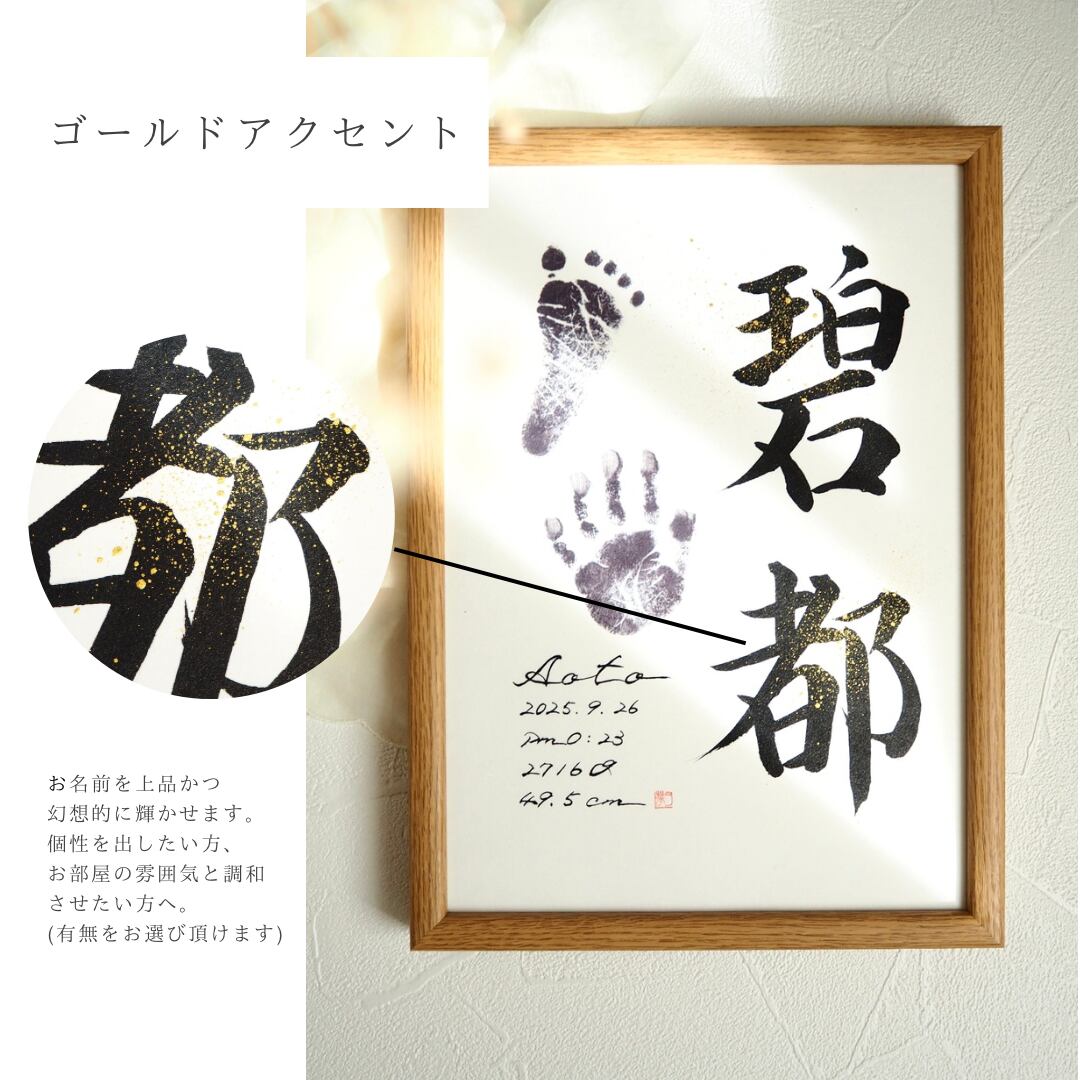 ゴールドアクセント
碧都
Aoto
2025.9.26
Pm 0:23
2716g
49.5cm
お名前を上品かつ
幻想的に輝かせます。
個性を出したい方、
お部屋の雰囲気と調和
させたい方へ。
(有無をお選び頂けます)